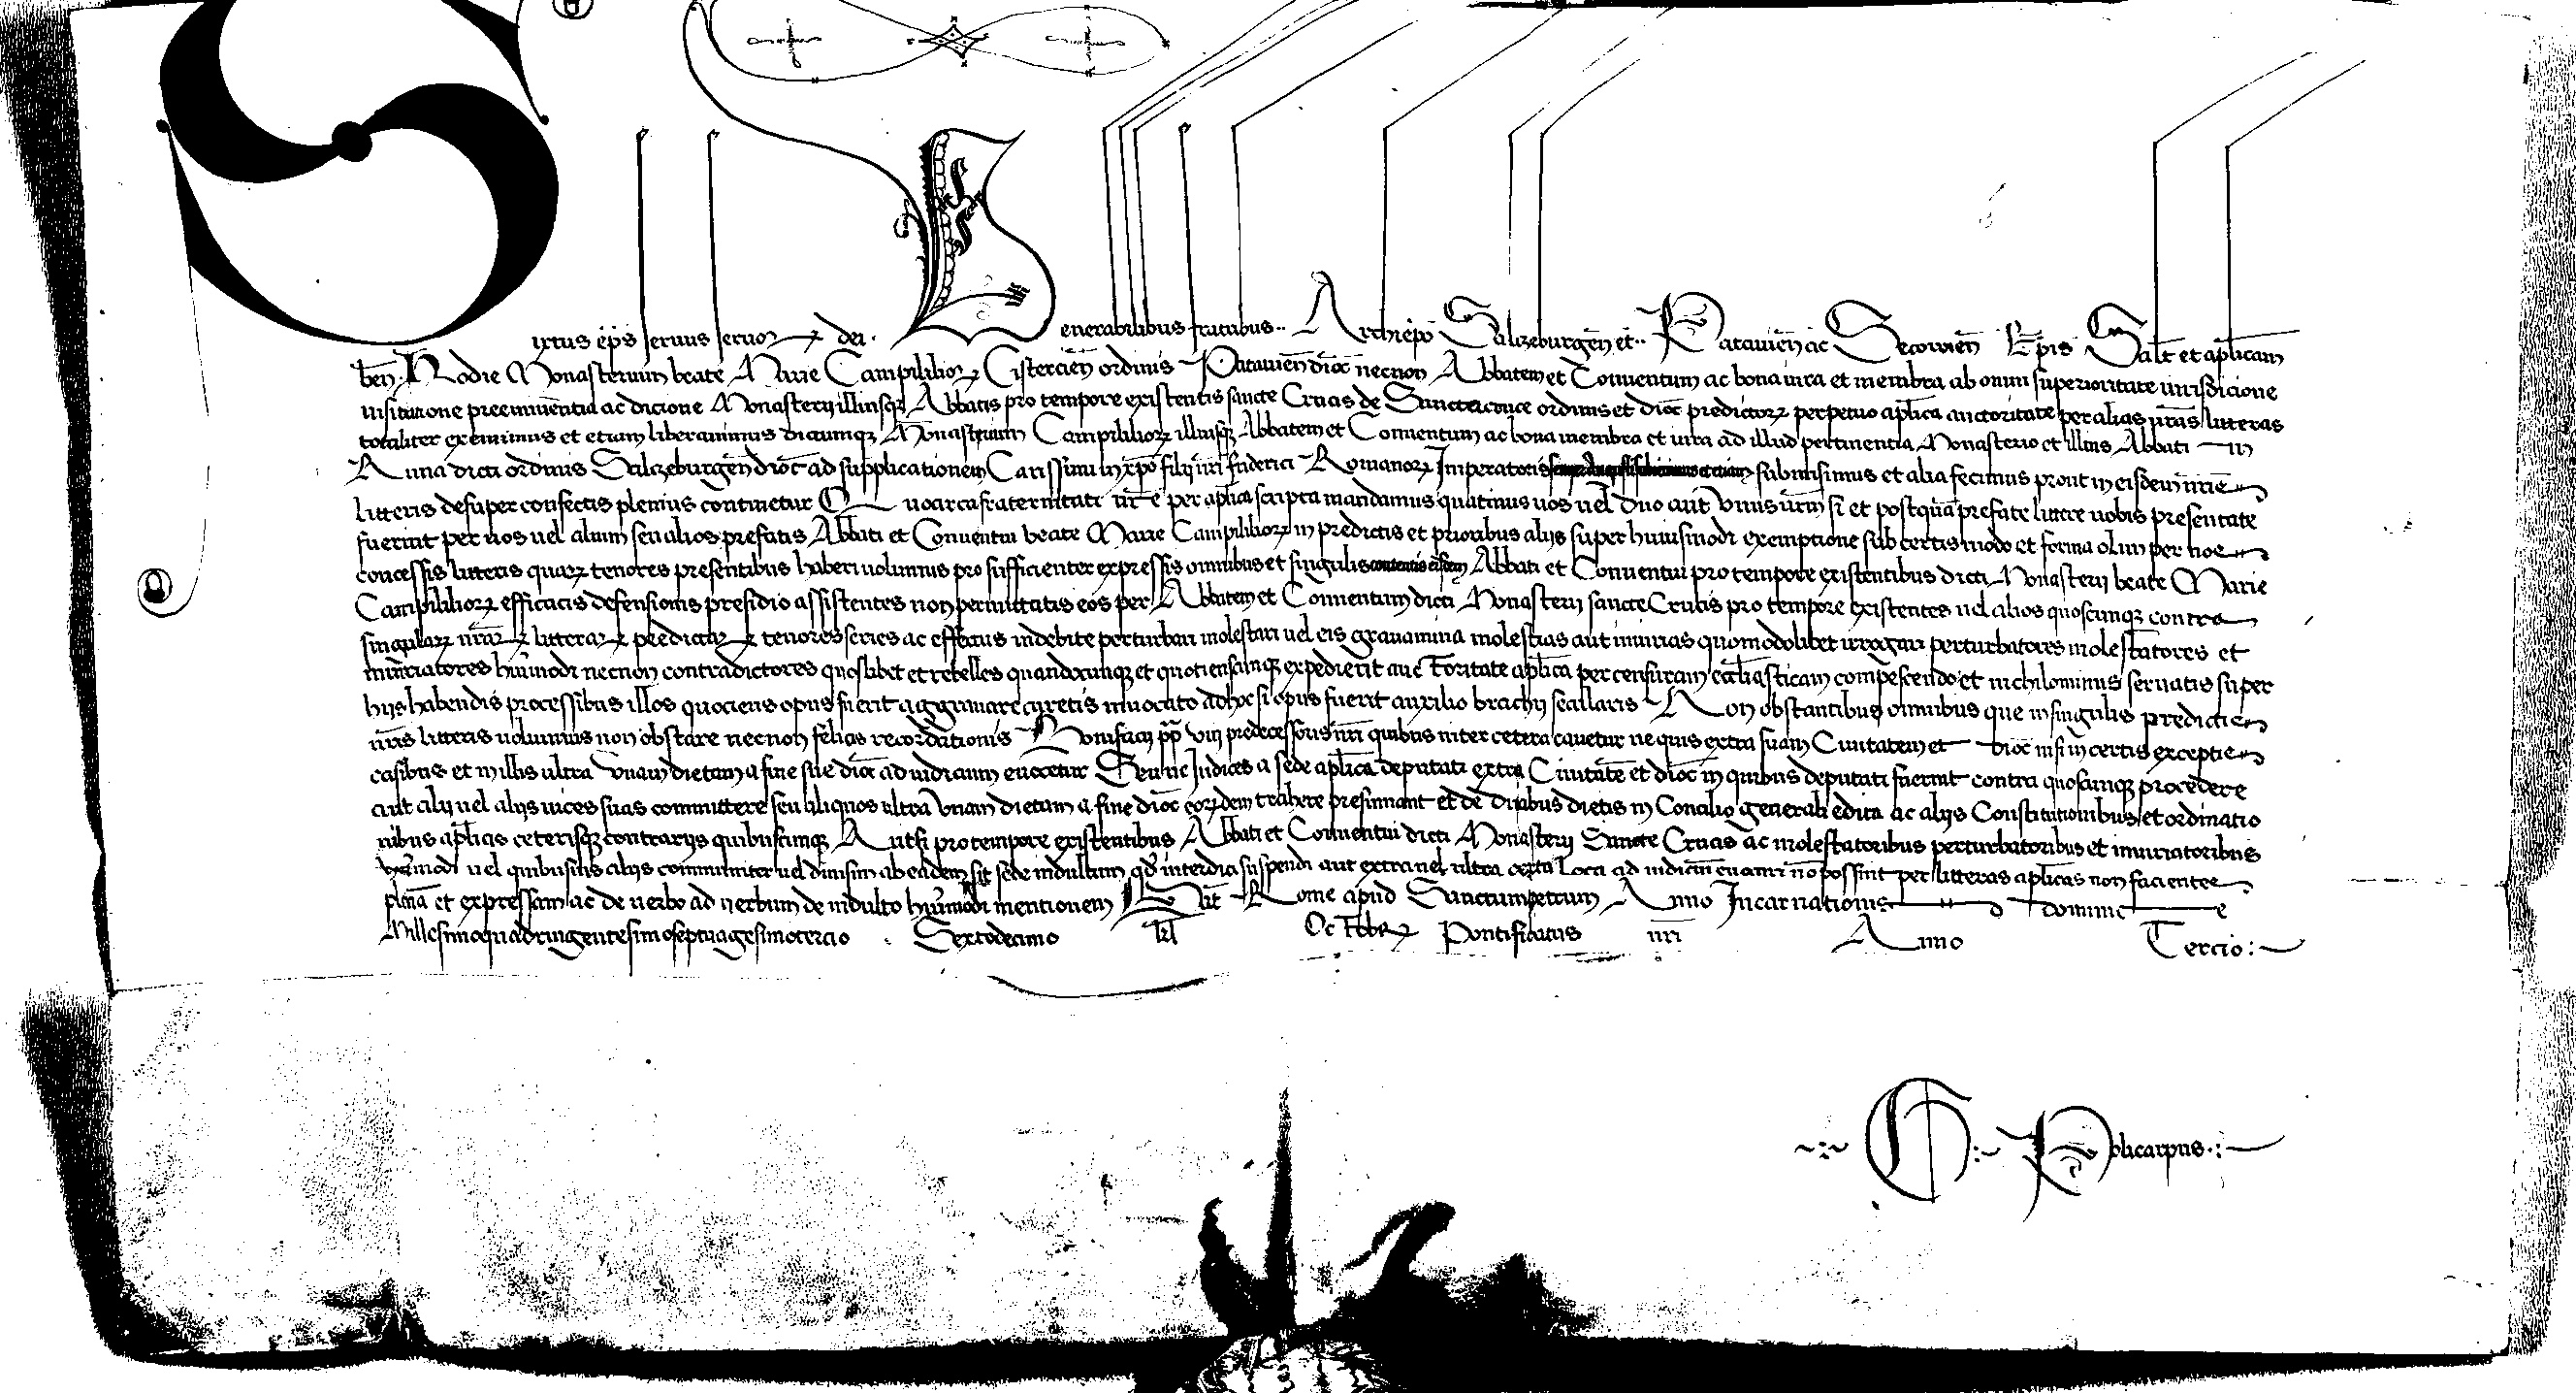 Sixtus ep̄s seruus seruoꝝ dei. Venerabilibus fratribus·· Archiep̄o Saltzeburgen̄ et·· Patauien̄ ac Secouien̄ Ep̄is Salt̄ et apl̄icam
ben̄. Hodie Monasterium beate Marie Campililioꝝ Cistercien̄ ordinis Patauien̄ dioc̄ necnon Abbatem et Conuentum ac bona iura et membra ab omni superioritate iurisdicione
uisitatione preeminentia ac dicione Monasterij illiusqꝫ Abbatis pro tempore existentis sancte Crucis de Sanctacruce ordinis et dioc̄ predictoꝝ perpetuo apl̄ica auctoritate per alias nr̄as litteras
totaliter exemimus et etiam liberauimus dictumqꝫ Monasterium Campililioꝝ illiusqꝫ Abbatem et Conuentum ac bona membra et iura ad illud pertinentia Monasterio et illius Abbati in
Runa dicti ordinis Saltzeburgen̄ dioc̄ ad supplicationem Carissimi in xp̄o filij nr̄i friderici Romanoꝝ Imperatoris submisimus et alia fecimus prout in eisdem nr̄is
litteris desuper confectis plenius continetur Quocirca fraternitati ur̄e per apl̄ica scripta mandamus quatinus uos uel duo aut unus ur̄m si et postquā prefate littere uobis presentate
fuerint per uos uel alium seu alios prefatis Abbati et Conuentui beate Marie Campililioꝝ in predictis et prioribus alijs super huiusmodi exemptione sub certis modo et forma olim per nos
concessis litteris quaꝝ tenores presentibus haberi uolumus pro sufficienter expressis omnibus et singulis contentis eisdem Abbati et Conuentui pro tempore existentibus dicti Monasterij beate Marie
Campililioꝝ efficacis defensionis presidio assistentes non permittatis eos per Abbatem et Conuentum dicti Monasterij sancte Crucis pro tempore existentes uel alios quoscunqꝫ contra
singulaꝝ nr̄aꝝ litteraꝝ predictaꝝ tenores series ac effectus indebite perturbari molestari uel eis grauamina molestias aut iniurias quomodolibet irrogari perturbatores molestatores et
iniuriatores hui͞modi necnon contradictores quoslibet et rebelles quandocunqꝫ et quotienscunqꝫ expedierit auctoritate apl̄ica per censuram ecclīasticam compescendo et nichilominus seruatis super
hijs habendis processibus illos quociens opus fuerit aggrauare curetis inuocato ad hoc si opus fuerit auxilio brachij secularis Non obstantibus omnibus que in singulis predictis
nr̄is litteris uolumus non obstare necnon felicis recordationis Bonifacij pp̄ viij predecessoris nr̄i quibus inter cetera cauetur ne quis extra suam Ciuitatem et dioc̄ nisi in certis exceptis
casibus et in illis ultra unam dietam a fine sue dioc̄ ad iudicium euocetur Seu ne Iudices a sede apl̄ica deputati extra Ciuitatē et dioc̄ in quibus deputati fuerint contra quoscunqꝫ procedere
aut alij uel alijs uices suas committere seu aliquos ultra unam dietam a fine dioc̄ eoꝝdem trahere presumant et de duabus dietis in Concilio generali edita ac alijs Constitutionibus et ordinatio
nibus apl̄icis ceterisqꝫ contrarijs quibuscunqꝫ Aut si pro tempore existentibus Abbati et Conuentui dicti Monasterij Sancte Crucis ac molestatoribus perturbatoribus et iniuriatoribus
hui͞modi uel quibusuis alijs communiter uel diuisim ab eadem sit sede indultum qd̄ interdici suspendi aut extra uel ultra certa loca ad iudiciū euocari nō possint per litteras apl̄icas non facientes
plenā et expressam ac de uerbo ad uerbum de indulto hui͞modi mentionem Dat̄ Rome apud Sanctumpetrum Anno Incarnationis dominice
Millesimoquadringentesimoseptuagesimotercio Sextodecimo kl̄ Octobꝝ Pontificatus nr̄i Anno Tercio:
Policarpus